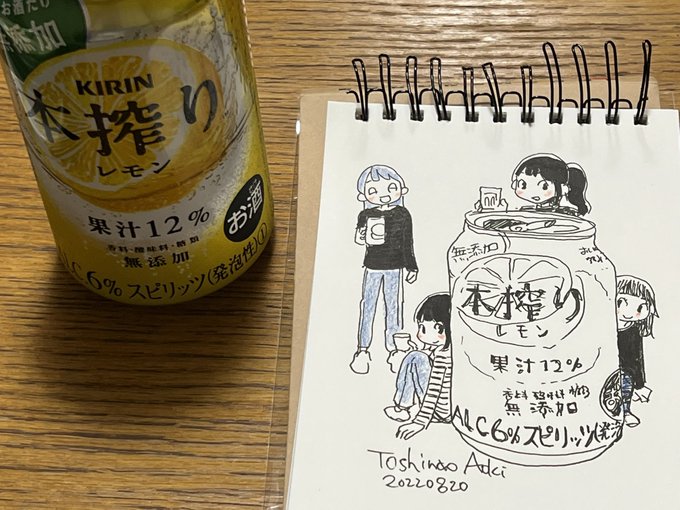 お酒だけ
無添加
KIRIN
本搾り
レモン
果汁12%
香料・酸味料・糖類
無添加
お酒
ALC6%スピリッツ(発泡性)①
無添加
本搾り
レモン
果汁12%
無添加
ALC6%スピリッツ(発泡
Toshinao Aoki
20220820